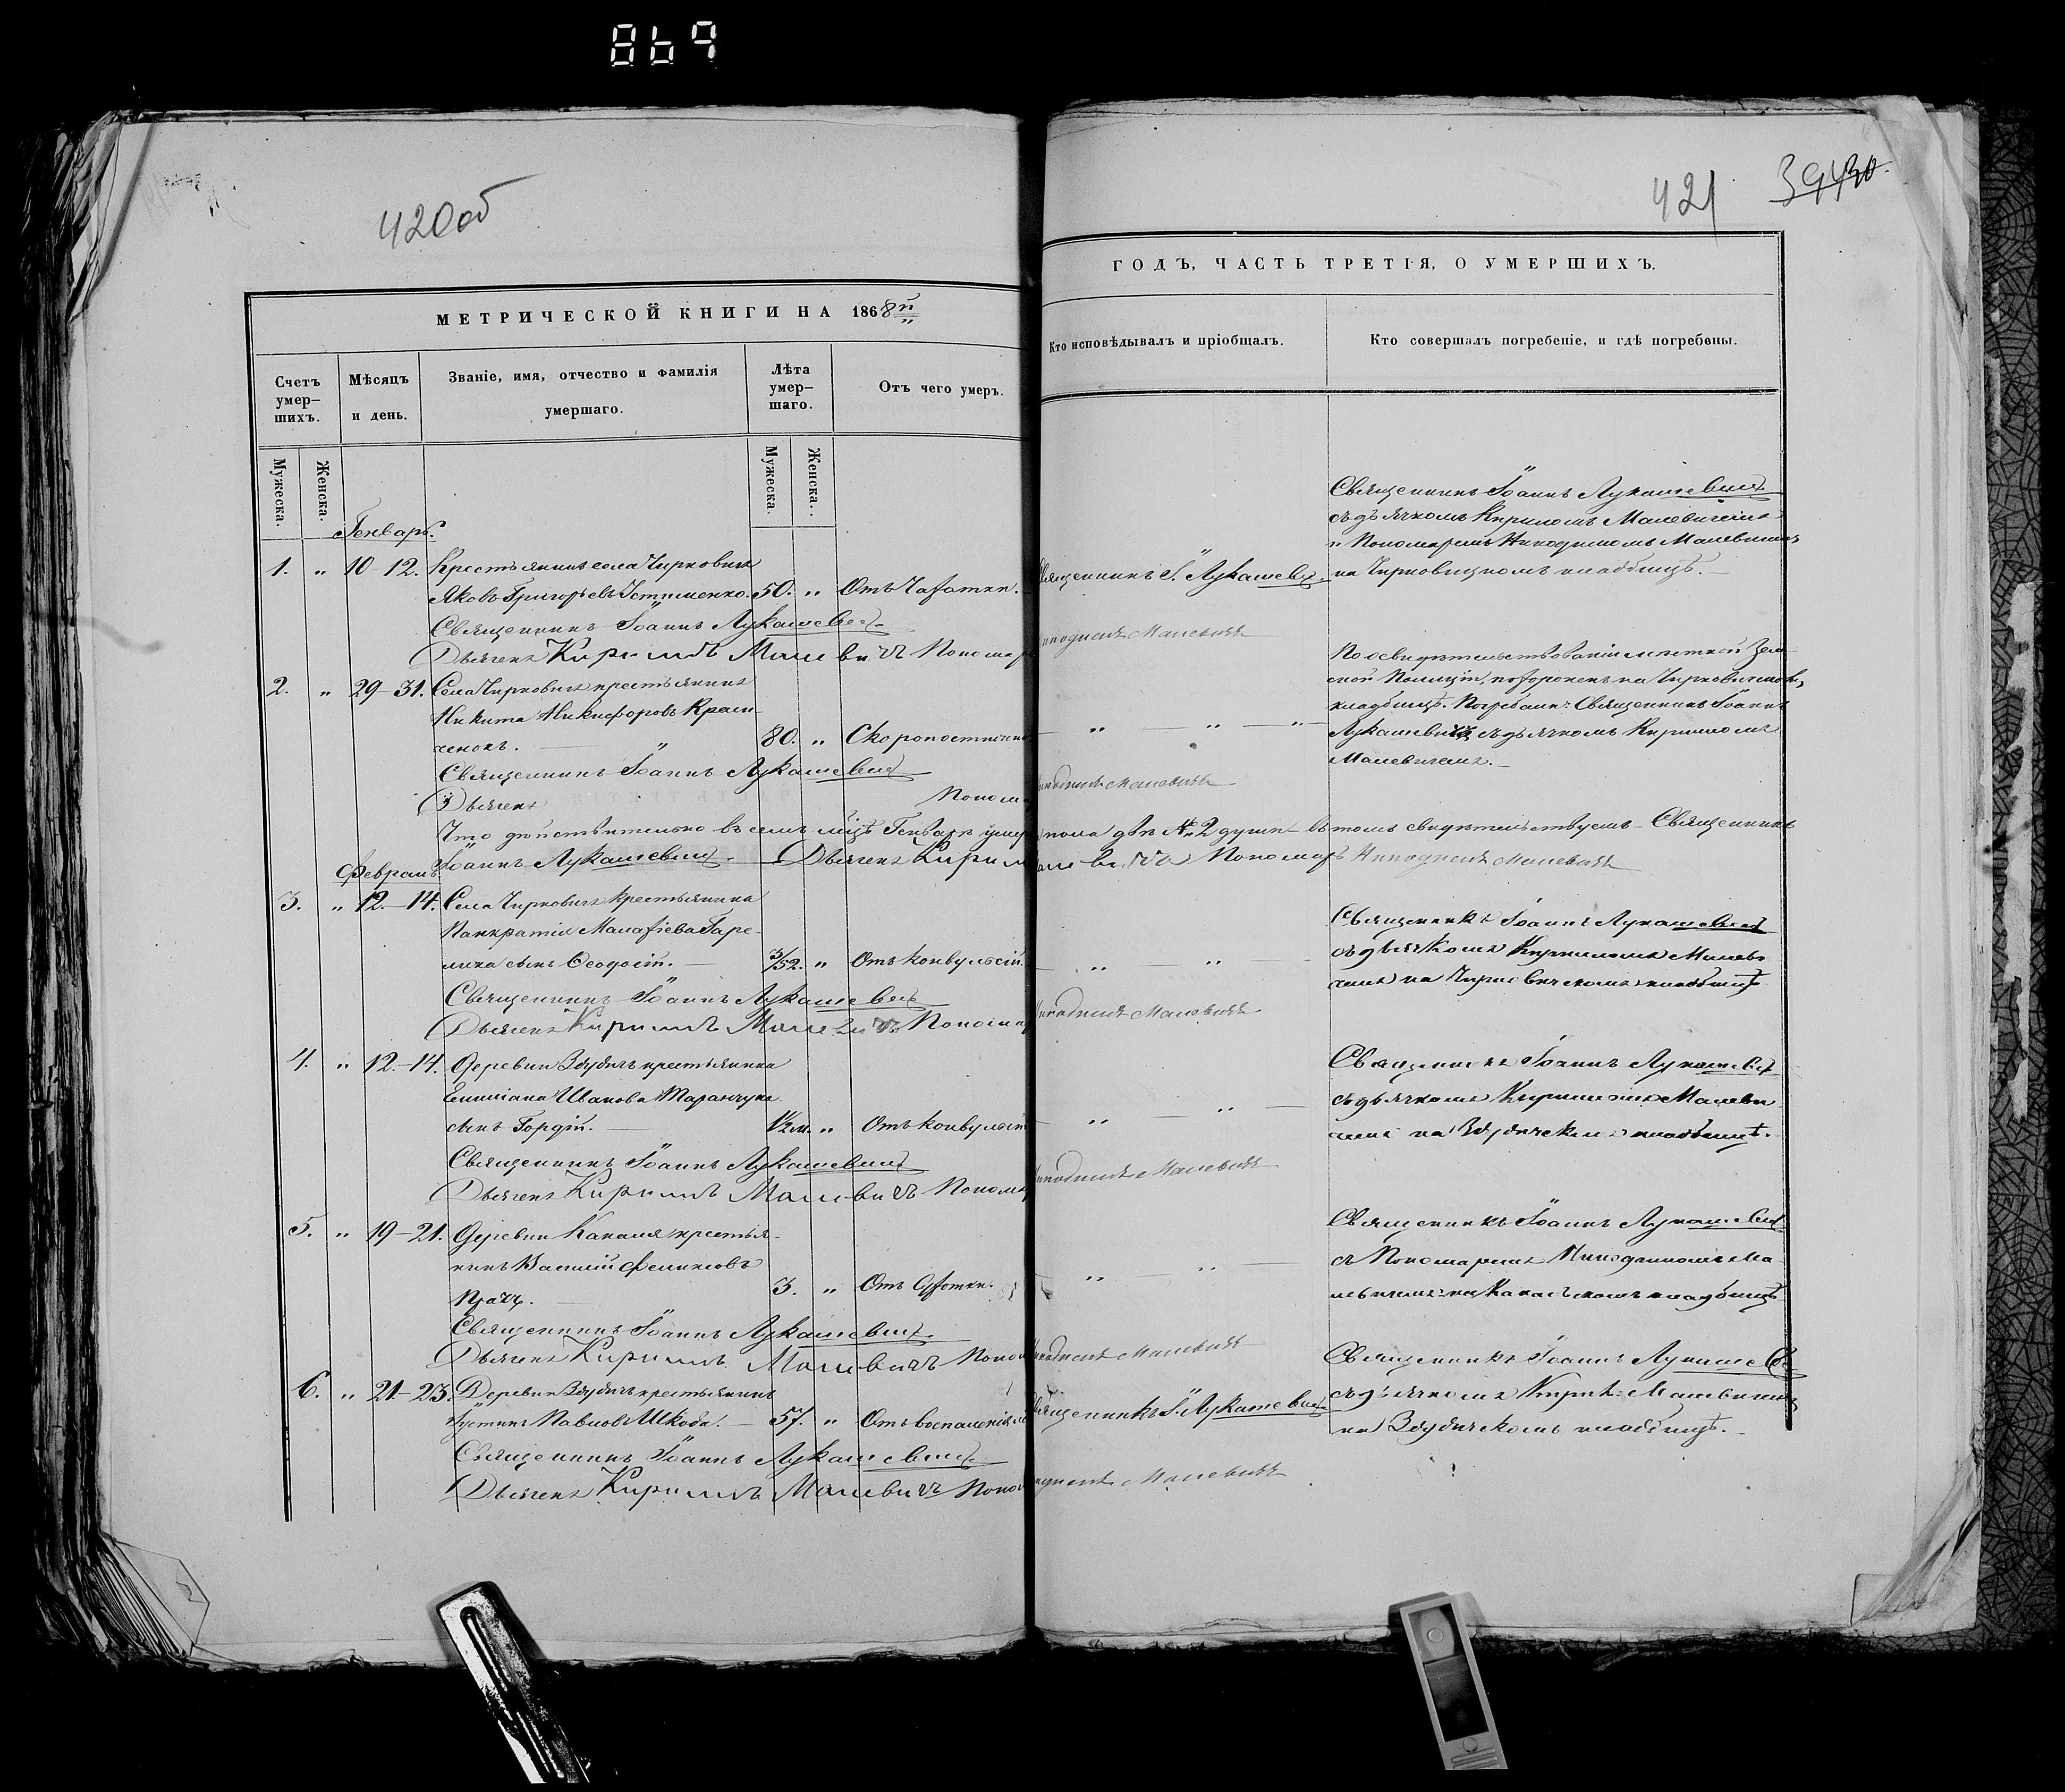 869
420об
421
39430.
МЕТРИЧЕСКОЙ КНИГИ НА 1868й
ГОДЪ, ЧАСТЬ ТРЕТІЯ, О УМЕРШИХЪ.
Счетъ умер-
шихъ.
Мѣсяцъ
и день.
Званіе, имя, отчество и фамилія
умершаго.
Лѣта
умер-
шаго.
Отъ чего умеръ.
Кто исповѣдывалъ и пріобщалъ.
Кто совершалъ погребеніе, и гдѣ погребены.
Мужеска.
Женска.
Мужеска.
Женска.
Генварь.
1. " 10-12. Крестьянинъ села Чирковичъ
Яковъ Григорьевъ Устименко. 50. " Отъ Чахотки.
Священникъ І. Лукашевичъ
Священникъ Іоаннъ Лукашевичъ
съ дьячкомъ Кириломъ Малевичемъ
и Пономаремъ Никодимомъ Малевичемъ
на Чирковицкомъ кладбищѣ.
Священникъ Іоаннъ Лукашевичъ
Дьячекъ Кириллъ Малевичъ Пономарь Никодимъ Малевичъ
2. " 29-31. Села Чирковичъ крестьянинъ
Никита Никифоровъ
80. " Скоропостижно
По освидѣтельствованіи мѣстной Зем-
ской Полиціи, похороненъ на
кладбищѣ. Погребали: Священникъ Іоаннъ
Лукашевичъ съ дьячкомъ Кириломъ
Малевичемъ.
Священникъ Іоаннъ Лукашевичъ
Дьячекъ Пономарь Никодимъ Малевичъ
Что дѣйствительно въ семъ м-цѣ Генварѣ пола двѣ № 2 души въ томъ свидѣтельствуемъ Священникъ
Іоаннъ Лукашевичъ. Дьячекъ Кириллъ Малевичъ Пономарь Никодимъ Малевичъ
Февраль
3. " 12-14. Села Чирковичъ крестьянина
Панкратія Малафіева Гаре-
лика сынъ Ѳеодосій. 3/52. " Отъ конвульсій.
Священникъ Іоаннъ Лукашевичъ
съ дьячкомъ Кириломъ Малеви-
чемъ на Чирковичскомъ кладбищѣ
Священникъ Іоаннъ Лукашевичъ
Дьячекъ Кириллъ Малевичъ Пономарь Никодимъ Малевичъ
4. " 12-14. Деревни Здудичъ крестьянина
Емиліана Иванова Таранчука
сынъ Гордій. 1/2 м. " Отъ конвульсій
Священникъ Іоаннъ Лукашевичъ
съ дьячкомъ Кириломъ Малеви-
чемъ на Здудичскомъ кладбищѣ.
Священникъ Іоаннъ Лукашевичъ
Дьячекъ Кириллъ Малевичъ Пономарь Никодимъ Малевичъ
5. " 19-21. Деревни Какаля крестья-
нинъ Василій Филиповъ
3. " Отъ Сухотки.
Священникъ Іоаннъ Лукашевичъ
съ Пономаремъ Никодимомъ Ма-
левичемъ на Какальскомъ кладбищѣ
Священникъ Іоаннъ Лукашевичъ
Дьячекъ Кириллъ Малевичъ Пономарь Никодимъ Малевичъ
6. " 21-23. Деревни Здудичъ крестьянинъ
Іустинъ Павловъ Шкода. 57. " Отъ воспаленія
Священникъ І. Лукашевичъ
Священникъ Іоаннъ Лукашевичъ
съ дьячкомъ Кирил: Малевичемъ
на Здудичскомъ кладбищѣ.
Священникъ Іоаннъ Лукашевичъ
Дьячекъ Кириллъ Малевичъ Пономарь Никодимъ Малевичъ